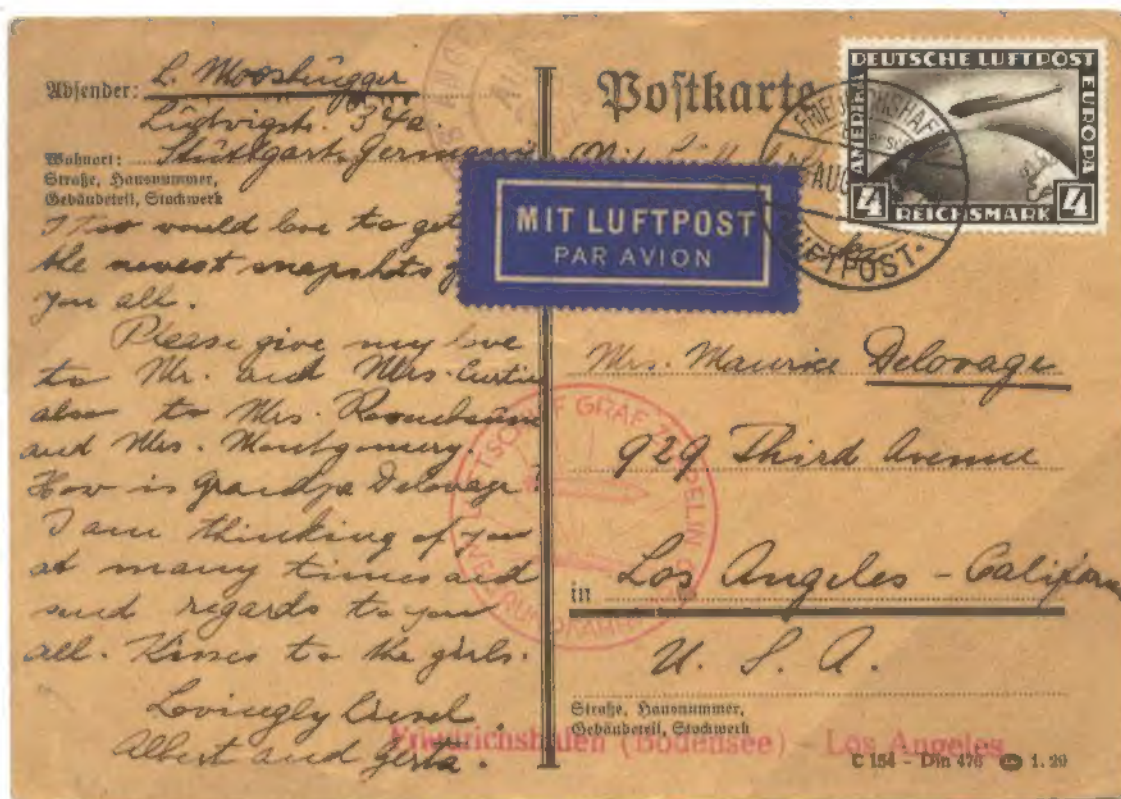 Absender: L. Moosbrugger
Ludwigstr. 34a.
Wohnort: Stuttgart, Germany
Straße, Hausnummer,
Gebäudeteil, Stockwerk
I too would love to get
the newest snapshots
you all.
Please give my love
to Mr. and Mrs. Curtis
also to Mrs.
and Mrs. Montgomery.
How is Grandpa Delovage?
I am thinking of you
at many times and
send regards to you
all. Kisses to the girls.
Lovingly
Albert and Gerta.
Postkarte
MIT LUFTPOST
PAR AVION
DEUTSCHE LUFTPOST
AMERIKA
EUROPA
4 REICHSMARK 4
FRIEDRICHSHAFEN
AUG
LUFTPOST
Mrs. Maurice Delovage
929 Third Avenue
in Los Angeles - Californ
U. S. A.
Straße, Hausnummer,
Gebäudeteil, Stockwerk
LUFTSCHIFF GRAF ZEPPELIN
WELTRUNDFAHRT
Friedrichshafen (Bodensee) - Los Angeles
C 154 - Din 476 1. 29